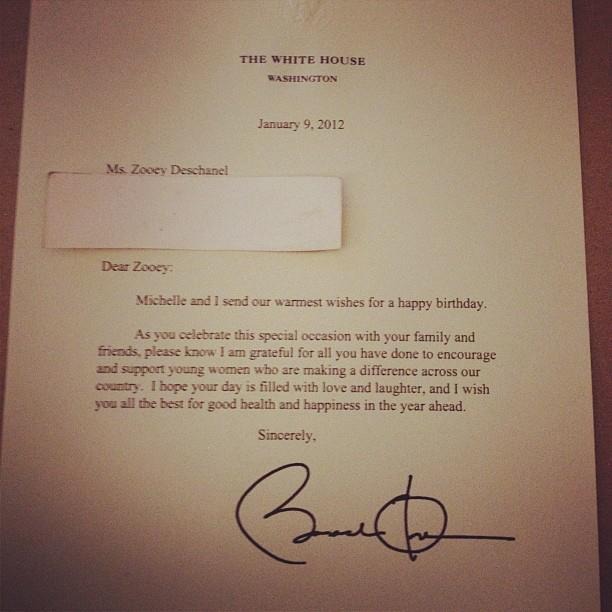 THE WHITE HOUSE
WASHINGTON
January 9, 2012
Ms. Zooey Deschanel
Dear Zooey:
Michelle and I send our warmest wishes for a happy birthday.
As you celebrate this special occasion with your family and
friends, please know I am grateful for all you have done to encourage
and support young women who are making a difference across our
country. I hope your day is filled with love and laughter, and I wish
you all the best for good health and happiness in the year ahead.
Sincerely,
Barack Obama